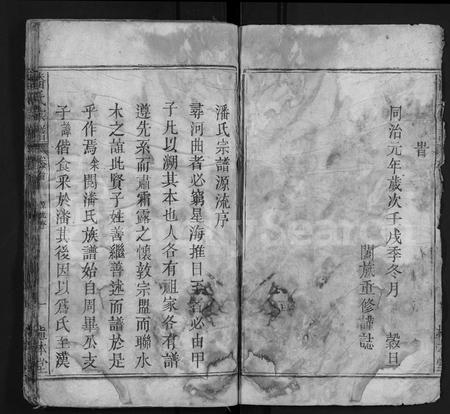 旹
同治元年歲次壬戌季冬月 穀日
闔族重修謹誌
潘氏宗譜源流序
尋河曲者必窮星海推日至者必由甲
子凡以溯其本也人各有祖家各有譜
遵先孫而肅霜露之懷敦宗盟而聯水
木之誼此賢子姓善繼善述而譜於是
乎作焉余閱潘氏族譜始自周畢公支
子諱偕食采於潘其後因以為氏至漢